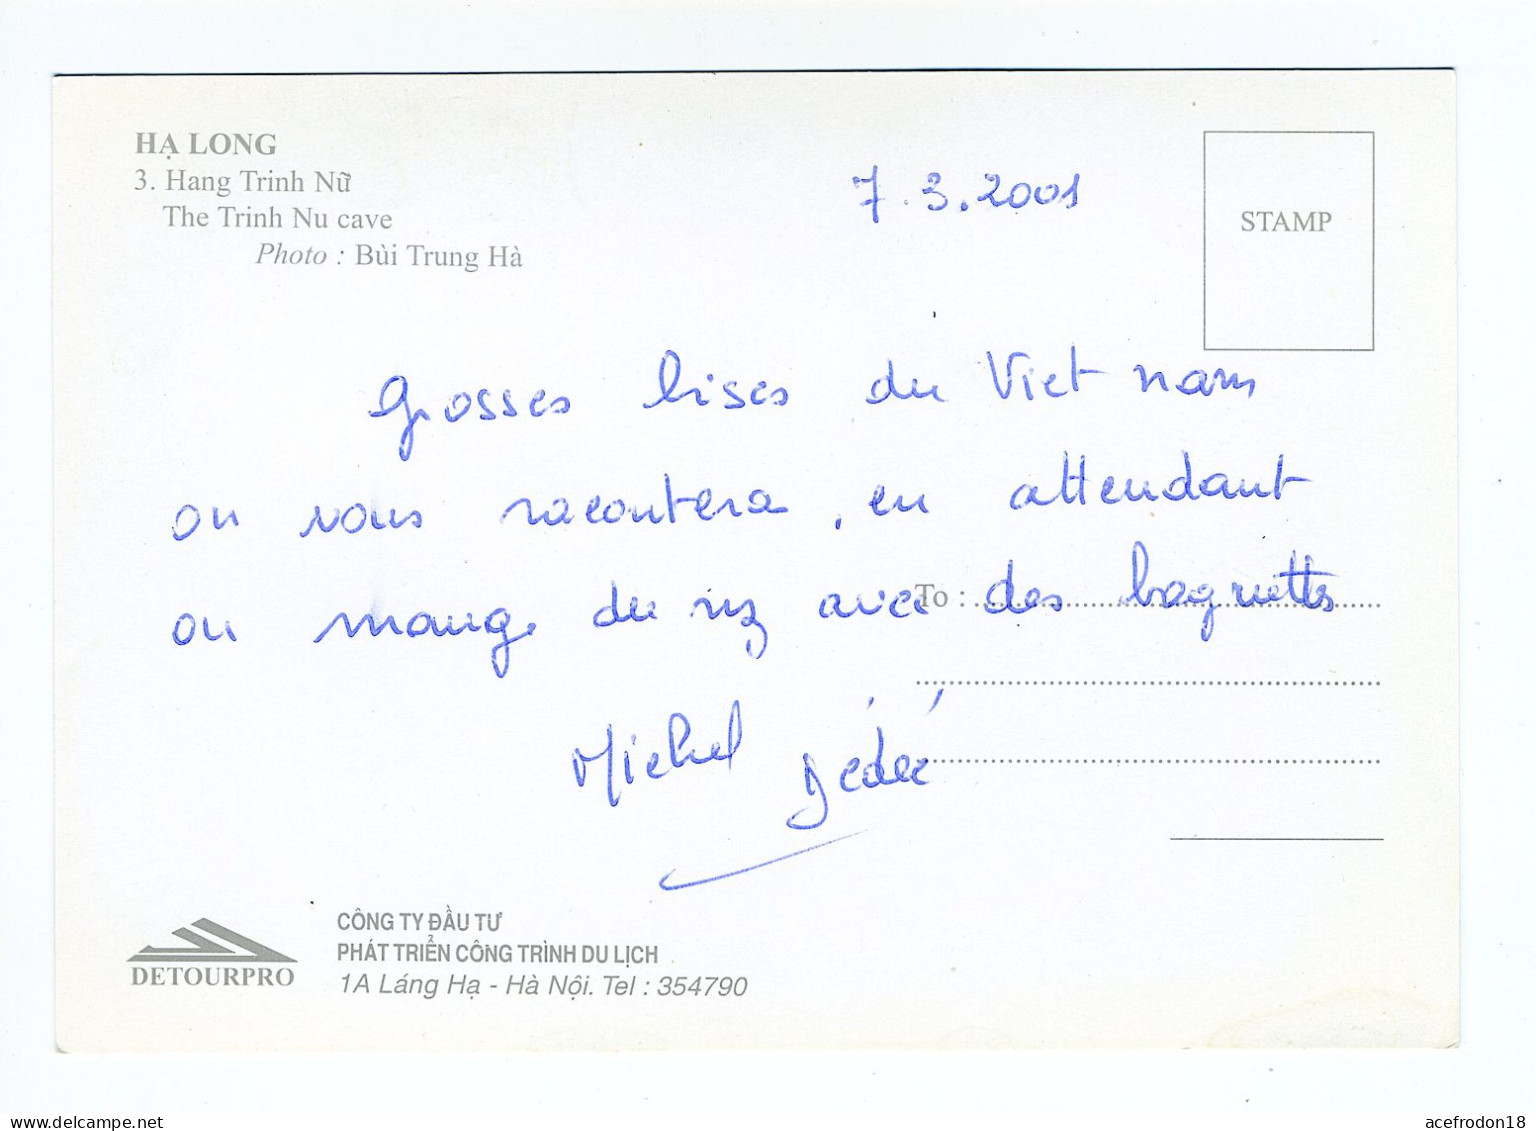 HẠ LONG
3. Hang Trinh Nữ
The Trinh Nu cave
Photo : Bùi Trung Hà
7.3.2001
STAMP
Grosses bises du Viet nam
on vous racontera, en attendant
on mange du riz avec des baguettes
To :
Michel Dédée
DETOURPRO
CÔNG TY ĐẦU TƯ
PHÁT TRIỂN CÔNG TRÌNH DU LỊCH
1A Láng Hạ - Hà Nội. Tel : 354790
www.delcampe.net
acefrodon18